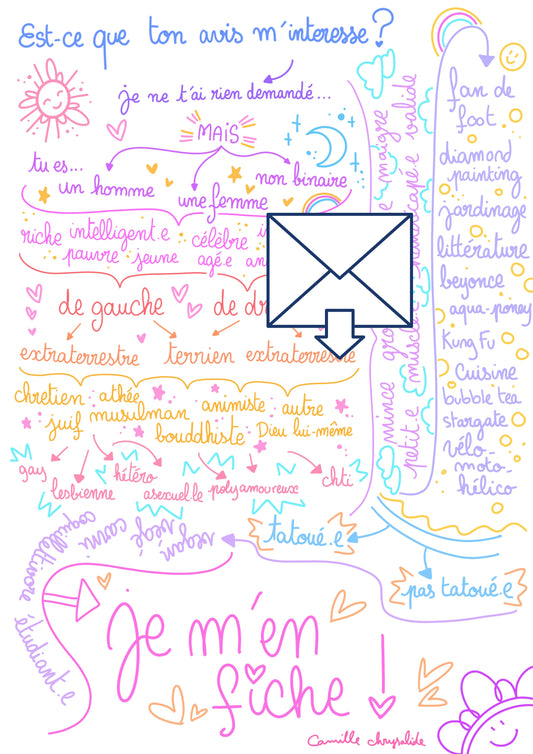 Est-ce que ton avis m'interesse?
je ne t'ai rien demandé...
MAIS
tu es...
un homme
une femme
non binaire
riche intelligent.e célèbre
pauvre jeune agé.e
de gauche de
extraterrestre terrien extraterrestre
chretien athée animiste autre
juif musulman bouddhiste Dieu lui-même
gay lesbienne hétéro asexuel.le polyamoureux chti
mince
petit.e
maigre
valide
fan de
foot
diamond
painting
jardinage
littérature
beyonce
aqua-poney
Kung Fu
Cuisine
bubble tea
stargate
vélo-
moto-
hélico
tatoué.e
pas tatoué.e
vegan
végé
carni
coquillettivore
étudiant.e
je m'en
fiche !
Camille chrysalide